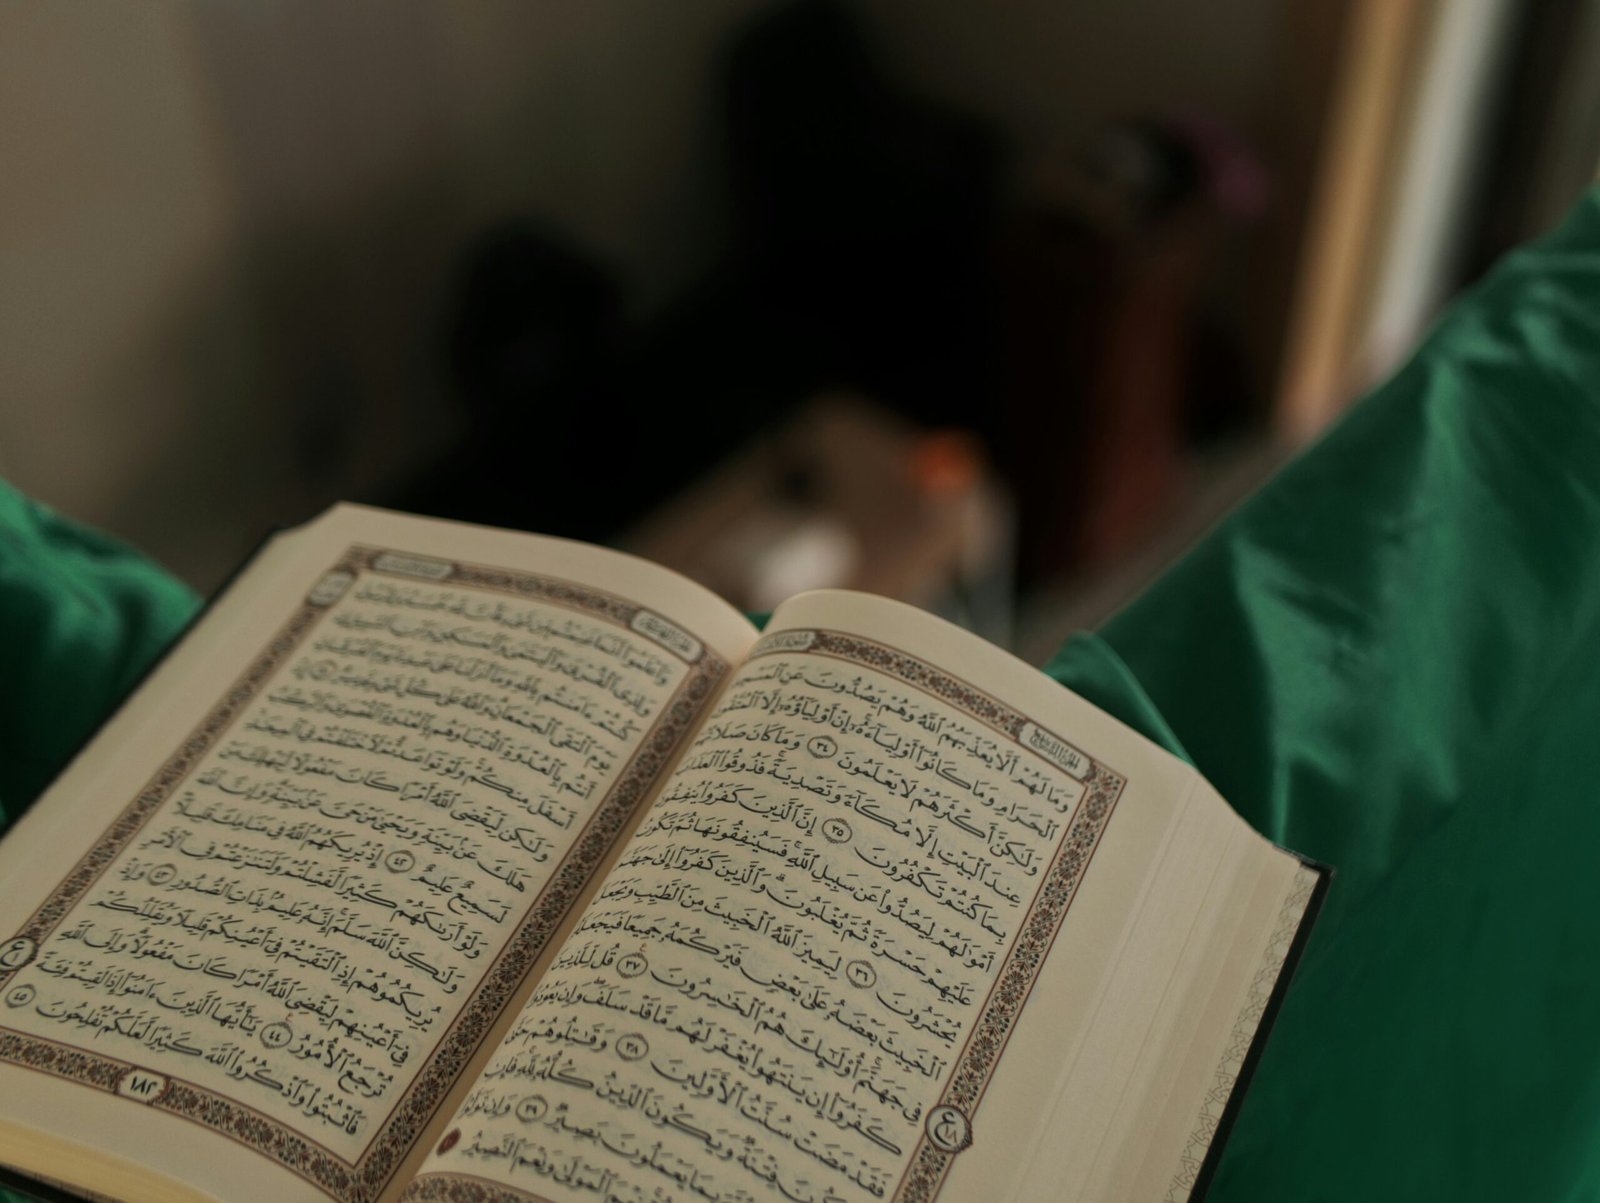 وَمَا لَهُمْ أَلَّا يُعَذِّبَهُمُ ٱللَّهُ وَهُمْ يَصُدُّونَ عَنِ
ٱلْحَرَامِ وَمَا كَانُوٓا۟ أَوْلِيَآءَهُۥٓ إِنْ أَوْلِيَآؤُهُۥٓ إِلَّا ٱلْمُتَّقُونَ
وَلَٰكِنَّ أَكْثَرَهُمْ لَا يَعْلَمُونَ ٣٤ وَمَا كَانَ صَلَاتُهُمْ
عِندَ ٱلْبَيْتِ إِلَّا مُكَآءً وَتَصْدِيَةً فَذُوقُوا۟ ٱلْعَذَابَ
بِمَا كُنتُمْ تَكْفُرُونَ ٣٥ إِنَّ ٱلَّذِينَ كَفَرُوا۟ يُنفِقُونَ
أَمْوَٰلَهُمْ لِيَصُدُّوا۟ عَن سَبِيلِ ٱللَّهِ فَسَيُنفِقُونَهَا ثُمَّ تَكُونُ
عَلَيْهِمْ حَسْرَةً ثُمَّ يُغْلَبُونَ وَٱلَّذِينَ كَفَرُوٓا۟ إِلَىٰ جَهَنَّمَ
يُحْشَرُونَ ٣٦ لِيَمِيزَ ٱللَّهُ ٱلْخَبِيثَ مِنَ ٱلطَّيِّبِ وَيَجْعَلَ
ٱلْخَبِيثَ بَعْضَهُۥ عَلَىٰ بَعْضٍ فَيَرْكُمَهُۥ جَمِيعًا فَيَجْعَلَهُۥ
فِى جَهَنَّمَ أُو۟لَٰٓئِكَ هُمُ ٱلْخَٰسِرُونَ ٣٧ قُل لِّلَّذِينَ
كَفَرُوٓا۟ إِن يَنتَهُوا۟ يُغْفَرْ لَهُم مَّا قَدْ سَلَفَ وَإِن يَعُودُوا۟
فَقَدْ مَضَتْ سُنَّتُ ٱلْأَوَّلِينَ ٣٨ وَقَٰتِلُوهُمْ حَتَّىٰ
تَكُونَ فِتْنَةٌ وَيَكُونَ ٱلدِّينُ كُلُّهُۥ لِلَّهِ فَإِنِ
بِمَا يَعْمَلُونَ بَصِيرٌ ٣٩ وَإِن تَوَلَّوْا۟
نِعْمَ ٱلْمَوْلَىٰ وَنِعْمَ ٱلنَّصِيرُ
وَٱعْلَمُوٓا۟ أَنَّمَا غَنِمْتُم مِّن شَىْءٍ فَأَنَّ لِلَّهِ خُمُسَهُۥ وَلِلرَّسُولِ
وَلِذِى ٱلْقُرْبَىٰ وَٱلْيَتَٰمَىٰ وَٱلْمَسَٰكِينِ وَٱبْنِ ٱلسَّبِيلِ إِن
كُنتُمْ ءَامَنتُم بِٱللَّهِ وَمَآ أَنزَلْنَا عَلَىٰ عَبْدِنَا يَوْمَ ٱلْفُرْقَانِ
يَوْمَ ٱلْتَقَى ٱلْجَمْعَانِ وَٱللَّهُ عَلَىٰ كُلِّ شَىْءٍ قَدِيرٌ ٤١ إِذْ
أَنتُم بِٱلْعُدْوَةِ ٱلدُّنْيَا وَهُم بِٱلْعُدْوَةِ ٱلْقُصْوَىٰ وَٱلرَّكْبُ
أَسْفَلَ مِنكُمْ وَلَوْ تَوَاعَدتُّمْ لَٱخْتَلَفْتُمْ فِى ٱلْمِيعَٰدِ
وَلَٰكِن لِّيَقْضِىَ ٱللَّهُ أَمْرًا كَانَ مَفْعُولًا لِّيَهْلِكَ مَنْ
هَلَكَ عَنۢ بَيِّنَةٍ وَيَحْيَىٰ مَنْ حَىَّ عَنۢ بَيِّنَةٍ وَإِنَّ ٱللَّهَ
لَسَمِيعٌ عَلِيمٌ ٤٢ إِذْ يُرِيكَهُمُ ٱللَّهُ فِى مَنَامِكَ قَلِيلًا
وَلَوْ أَرَىٰكَهُمْ كَثِيرًا لَّفَشِلْتُمْ وَلَتَنَٰزَعْتُمْ فِى ٱلْأَمْرِ
وَلَٰكِنَّ ٱللَّهَ سَلَّمَ إِنَّهُۥ عَلِيمٌۢ بِذَاتِ ٱلصُّدُورِ ٤٣ وَإِذْ
يُرِيكُمُوهُمْ إِذِ ٱلْتَقَيْتُمْ فِىٓ أَعْيُنِكُمْ قَلِيلًا وَيُقَلِّلُكُمْ
فِىٓ أَعْيُنِهِمْ لِيَقْضِىَ ٱللَّهُ أَمْرًا كَانَ مَفْعُولًا وَإِلَى ٱللَّهِ
تُرْجَعُ ٱلْأُمُورُ ٤٤ يَٰٓأَيُّهَا ٱلَّذِينَ ءَامَنُوٓا۟ إِذَا لَقِيتُمْ فِئَةً
فَٱثْبُتُوا۟ وَٱذْكُرُوا۟ ٱللَّهَ كَثِيرًا لَّعَلَّكُمْ تُفْلِحُونَ ٤٥
١٨٢